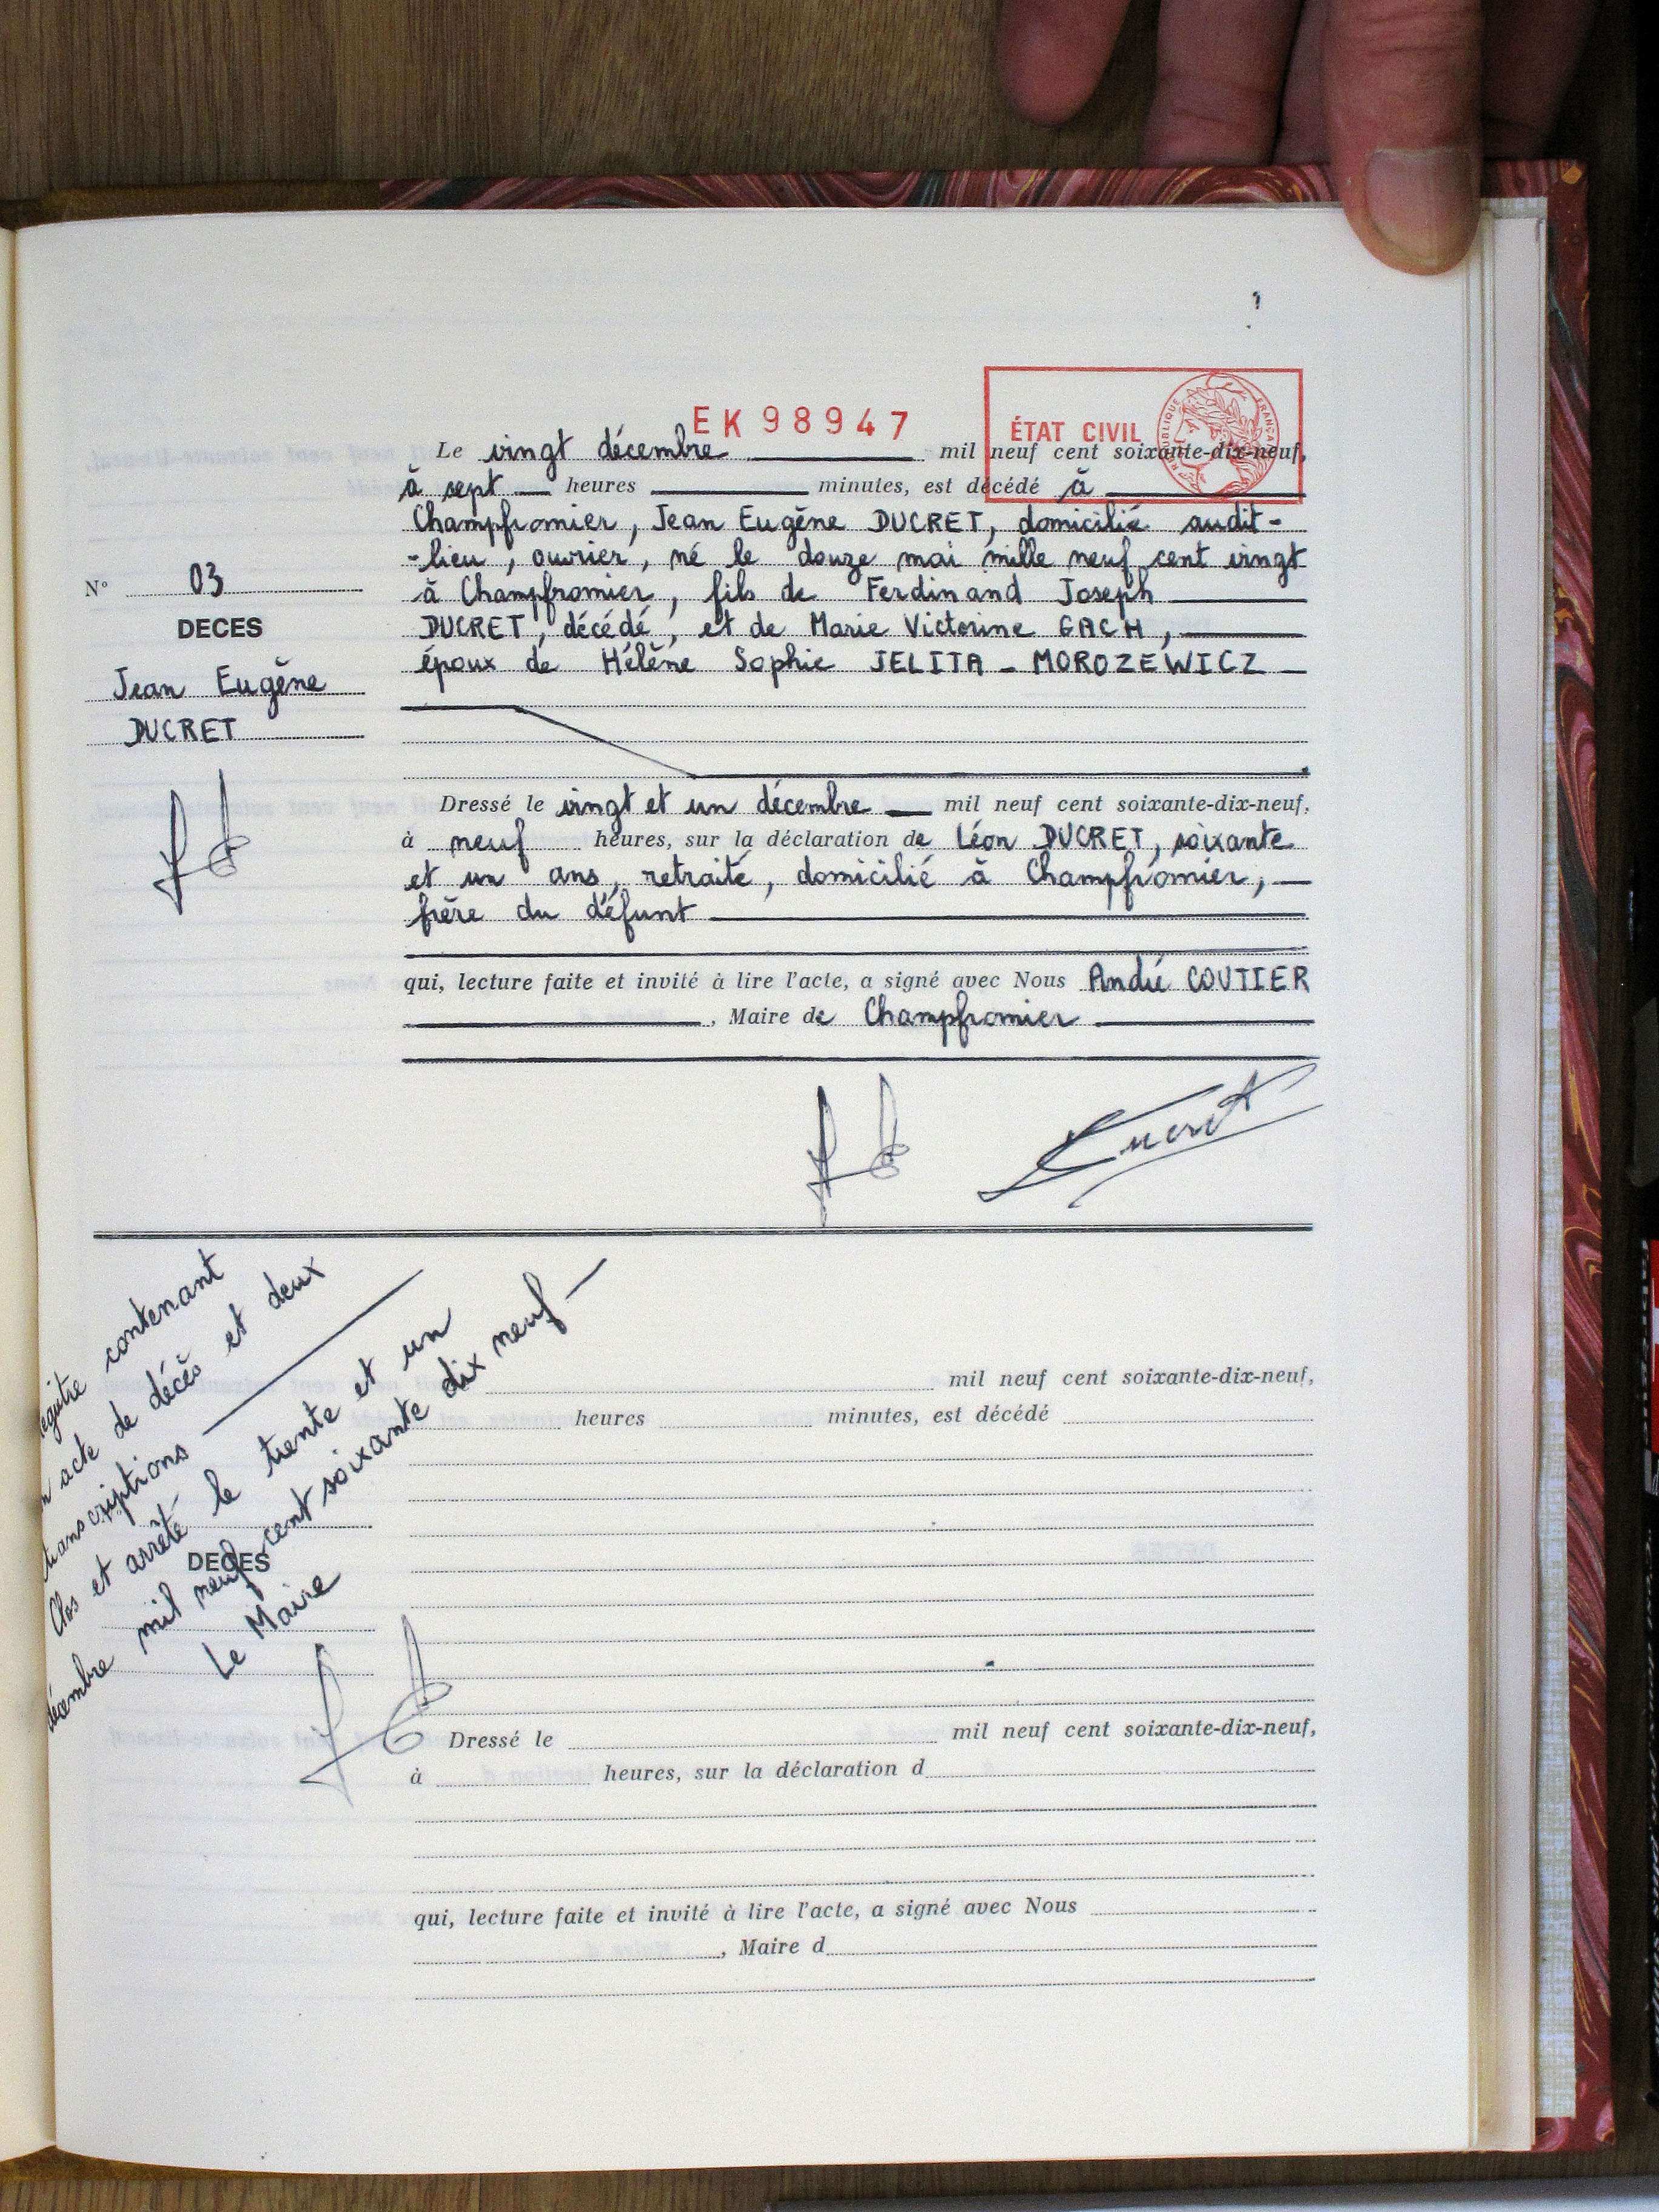 EK98947
ÉTAT CIVIL
RÉPUBLIQUE FRANÇAISE
Le vingt décembre mil neuf cent soixante-dix-neuf,
à sept heures minutes, est décédé à
Champfromier, Jean Eugène DUCRET, domicilié audit-
-lieu, ouvrier, né le douze mai mille neuf cent vingt
N° 03
à Champfromier, fils de Ferdinand Joseph
DECES
DUCRET, décédé, et de Marie Victorine GACH,
époux de Hélène Sophie JELITA - MOROZEWICZ
Jean Eugène
DUCRET
Dressé le vingt et un décembre mil neuf cent soixante-dix-neuf,
à neuf heures, sur la déclaration de Léon DUCRET, soixante
et un ans, retraité, domicilié à Champfromier,
frère du défunt
qui, lecture faite et invité à lire l'acte, a signé avec Nous André COUTIER
, Maire de Champfromier
Ducret
contenant
acte de décès et deux
transcriptions
Clos et arrêté le trente et un
décembre mil neuf cent soixante dix neuf
Le Maire
mil neuf cent soixante-dix-neuf,
heures minutes, est décédé
DECES
Dressé le mil neuf cent soixante-dix-neuf,
à heures, sur la déclaration d
qui, lecture faite et invité à lire l'acte, a signé avec Nous
, Maire d